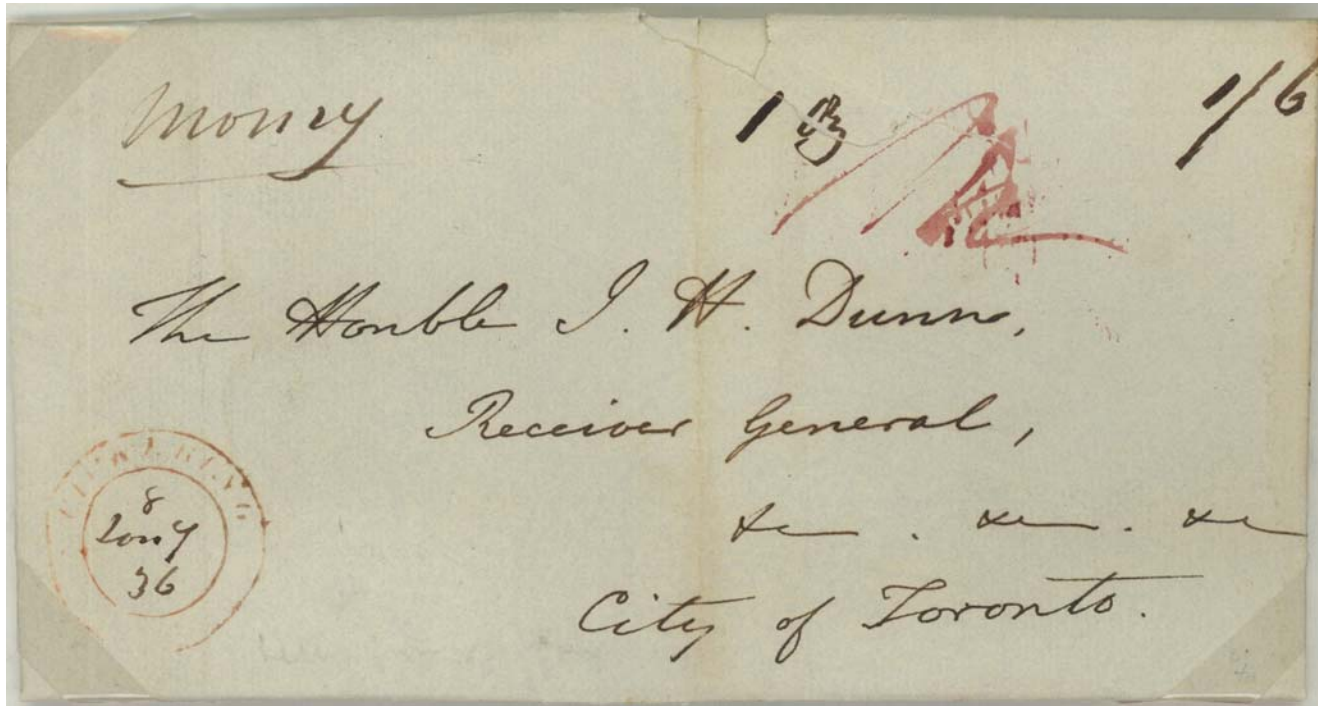 Money
1 oz 1/6
The Honble J. H. Dunn,
Receiver General,
&c . &c . &c
City of Toronto.
8
Jany
36